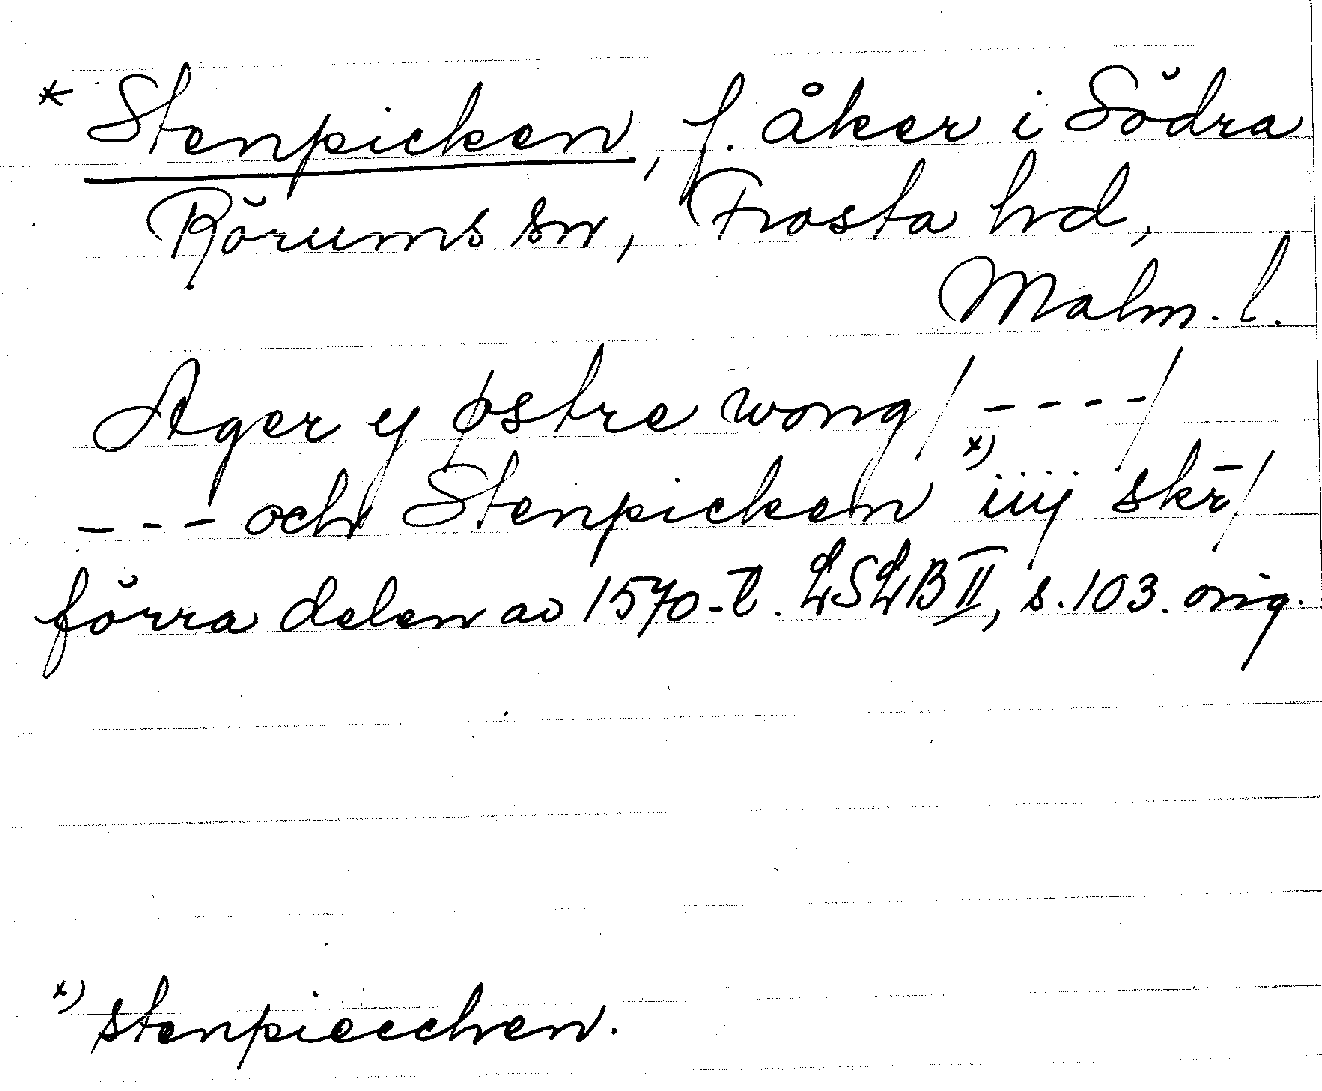 * Stenpicken, f. åker i Södra
Rörums sn, Frosta hd,
Malm. l.
Ager y østre wong/----/
--- och Stenpicken x) iiij skr̄/
förra delen av 1570-t. LSLB II, s. 103. orig.
x) stenpiecchen.